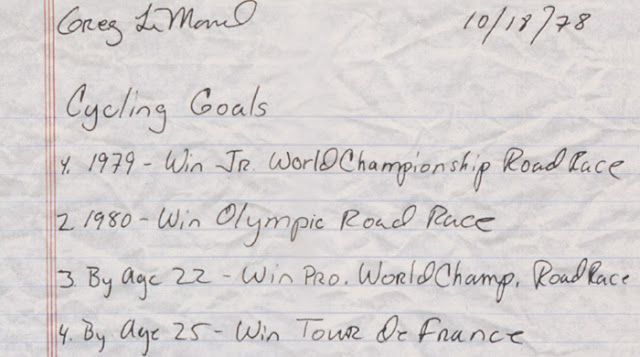 Greg LeMond 10/18/78
Cycling Goals
1. 1979 - Win Jr. World Championship Road Race
2. 1980 - Win Olympic Road Race
3. By Age 22 - Win Pro. World Champ. Road Race
4. By Age 25 - Win Tour De France